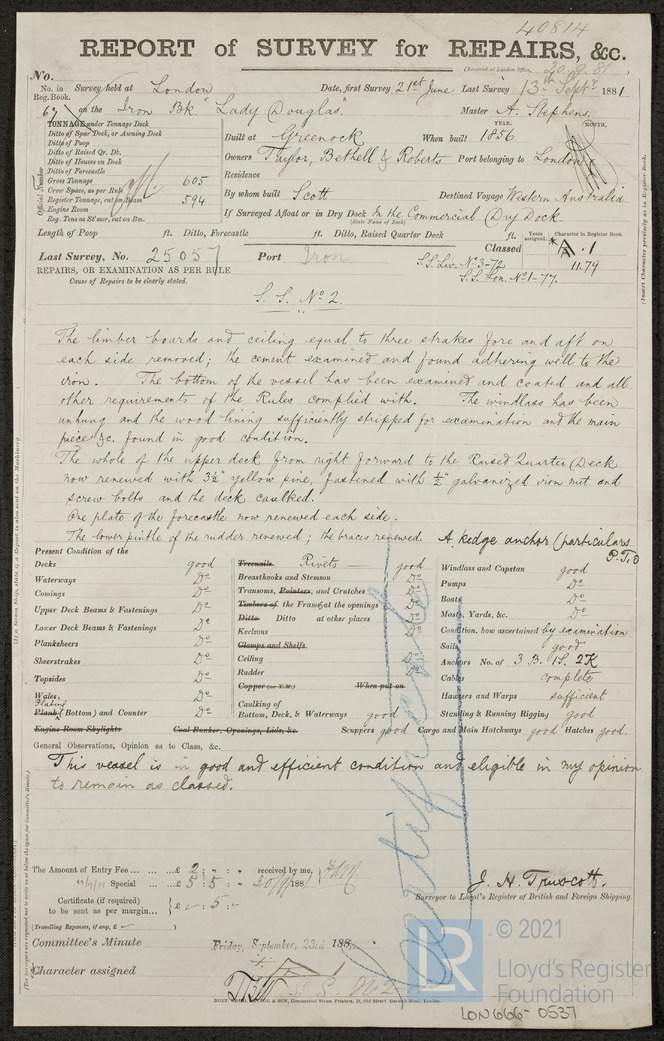 40814
REPORT of SURVEY for REPAIRS, &c.
(Received at London Office, 20.9.81)
No.
No. in Reg. Book. Survey held at London Date, first Survey 21st June Last Survey 13th Sept. 1881
67 on the Iron Bk "Lady Douglas" Master A. Stephens
TONNAGE under Tonnage Deck
Ditto of Spar Deck, or Awning Deck
Ditto of Poop
Ditto of Raised Qr. Dk.
Ditto of Houses on Deck
Ditto of Forecastle
Gross Tonnage 605
Crew Space, as per Rule
Register Tonnage, cut on Beam 594
Engine Room
Reg. Tons as St'mer, cut on Bm.
Official Number
YEAR. MONTH.
Built at Greenock When built 1856
Owners Taylor, Bethell & Roberts Port belonging to London
Residence
By whom built Scott Destined Voyage Western Australia
If Surveyed Afloat or in Dry Dock In the Commercial Dry Dock.
(State Name of Dock)
Length of Poop ft. Ditto, Forecastle ft. Ditto, Raised Quarter Deck ft.
Last Survey, No. 25057 Port Iron
Classed Years assigned. Character in Register Book. A.1
11.79
S.S. Liv. No 3-72
S.S. Lon. No 1-77.
REPAIRS, OR EXAMINATION AS PER RULE
Cause of Repairs to be clearly stated.
S.S. No 2.
The limber boards and ceiling equal to three strakes fore and aft on
each side removed; the cement examined and found adhering well to the
iron. The bottom of the vessel has been examined and coated and all
other requirements of the Rules complied with. The windlass has been
unhung and the wood lining sufficiently stripped for examination and the main
piece &c. found in good condition.
The whole of the upper deck from right forward to the Raised Quarter Deck
now renewed with 3½" yellow pine, fastened with ½" galvanized iron nut and
screw bolts and the deck caulked.
One plate of the forecastle now renewed each side.
The lower pintle of the rudder renewed; the braces renewed. A kedge anchor (particulars
P.T.O
Present Condition of the
Decks good
Waterways Do
Comings Do
Upper Deck Beams & Fastenings Do
Lower Deck Beams & Fastenings Do
Planksheers Do
Sheerstrakes Do
Topsides Do
Wales, Do
Plating
Plank (Bottom) and Counter Do
Engine Room Skylights Coal Bunker, Openings, Lids, &c.
Treenails Rivets good
Breasthooks and Stemson Do
Transoms, Pointers, and Crutches Do
Timbers of the Frame at the openings Do
Ditto Ditto at other places Do
Keelsons Do
Clamps and Shelfs
Ceiling Do
Rudder Do
Copper (or Y.M.) When put on
Caulking of
Bottom, Deck, & Waterways good
Scuppers good Cargo and Main Hatchways good Hatches good.
Windlass and Capstan good
Pumps Do
Boats Do
Masts, Yards, &c. Do
Condition, how ascertained by examination
Sails good
Anchors No. of 3 B. 1S. 2K
Cables complete
Hawsers and Warps sufficient
Standing & Running Rigging good
General Observations, Opinion as to Class, &c.
This vessel is in good and efficient condition and eligible in my opinion
to remain as classed.
Certificate
The Amount of Entry Fee ... £ 2 : " : " received by me,
Special ... £ 5 : 5 : " 188
Certificate (if required) to be sent as per margin... £ " : 5 : "
(Travelling Expenses, if any, £ )
J. H. Truscott.
Surveyor to Lloyd's Register of British and Foreign Shipping.
Committee's Minute Friday, September, 23rd 188
Character assigned
S.S. No 2
(Insert Character precisely as in Register Book.
(If a Steam Ship, state if a Report is also sent on the Machinery.
LR © 2021
Lloyd's Register
Foundation
LON666-0537